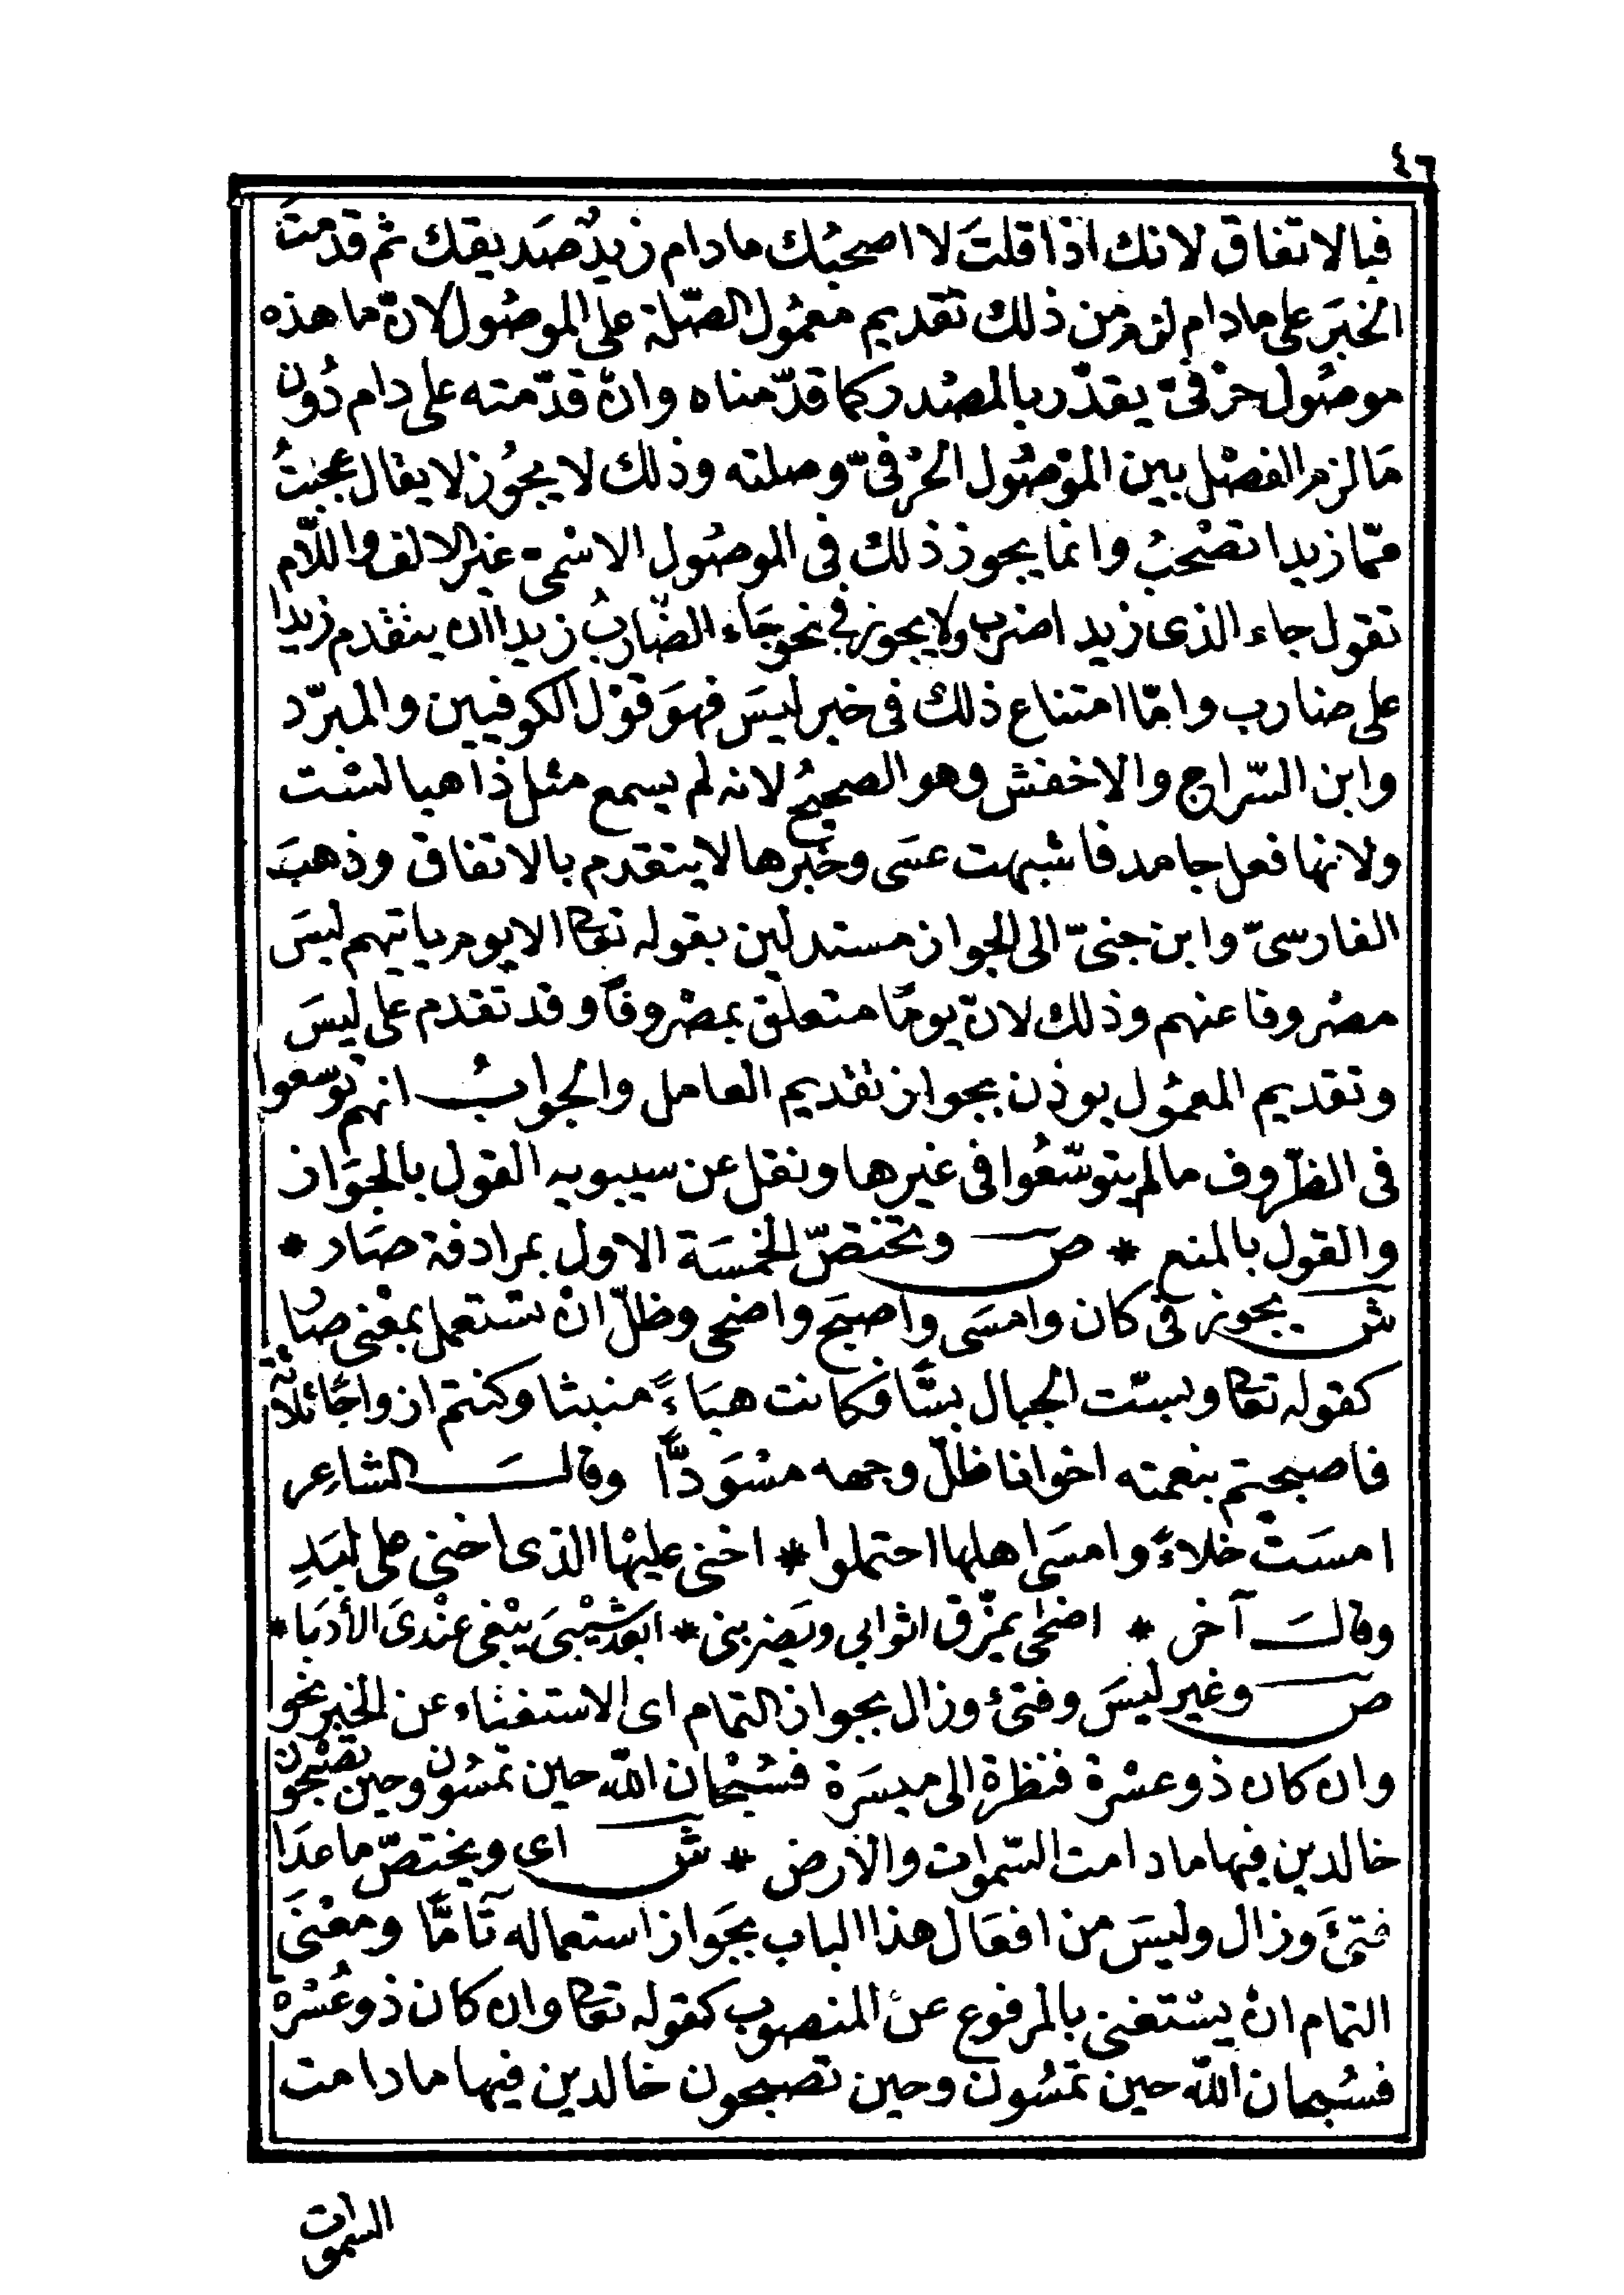 ٤٦
فبالاتفاق لانك اذا قلتَ لا اصحبُك مادام زيدٌ صَديقك ثم قدمتَ
الخبَر على مادام لزم من ذلك تقديم معمُول الصّلة على الموصُول لانّ ما هذه
موصُول حرْفىّ يقدّر بالمصْدر كما قدّمناه وانْ قدّمته على دام دُون
مَا لزم الفصْل بين الموْصُول الحرْفىّ وصلته وذلك لا يجُوز لا يقال عجبْتُ
ممّا زيدا تصْحبُ وانما يجوز ذلك فى الموصُول الاسْمىّ غيْر الالف واللّام
تقول جاء الذى زيدا ضرب ولا يجوز فى نحو جَاء الضّاربُ زيدا ان يتقدم زيدا
على ضارب وامّا امتناع ذلك فى خبر ليسَ فهوَ قوْل الكوفيين والمبرّد
وابن السّراج والاخفش وهو الصحيحُ لانه لم يسمع مثل ذاهبا لسْت
ولانها فعل جامد فاشبهت عسَى وخبرها لا يتقدم بالاتفاق وذهبَ
الفارسىّ وابن جنىّ الى الجواز مستدلين بقوله تعا الا يوم ياتيهم ليسَ
مصْروفا عنهم وذلك لانّ يومًا متعلق بمصْروفًا وقد تقدم على ليسَ
وتقديم المعمُول يوذن بجواز تقْديم العامل والجوابُ انهم توسّعوا
فى الظّروف مالم يتوسّعُوا فى غيرها ونقل عن سيبويه القول بالجَواز
والقول بالمنع * ص وتختصّ الخمسَة الاول بمرادفة صَار *
ش يجوز فى كان وامسَى واصبَح واضحى وظلّ انْ تستعمل بمعْنى صَار
كقوله تعا وبسّت الجبال بسًّا فكانت هبَاءً منبثا وكنتم ازواجًا ثلاثة
فاصبحتم بنعمته اخوانا ظلّ وجهه مسْوَدًّا وقالَ الشاعِر
امسَتْ خلاءً وامسَى اهلها احتملوا * اخنى عليْها الذى اخنى على لبَدِ
وقالَ آخر * اضحٰى يمزّق اثوابى ويَضربنى * ابَعْدَ شيْبىَ يبْغى عنْدىَ الأدَبا *
ص وغير ليسَ وفتئ وزال بجواز التمام اى الاستغنَاء عن الخبر نحو
وان كان ذو عسْرة فنظرة الى ميسَرة فسُبْحان الله حين تمسُون وحين تصْبحُون
خالدين فيها مادامت السّموات والارض * ش اى ويختصّ ما عدَا
فتئَ وزال وليسَ من افعَال هذا الباب بجَواز استعماله تَامًّا ومعْنَى
التمام انْ يسْتغنى بالمرفوع عن المنصوب كقوله تعا وان كان ذو عُسْرة
فسُبحان الله حين تمسُون وحين تصبحون خالدين فيها مادامت
السموات